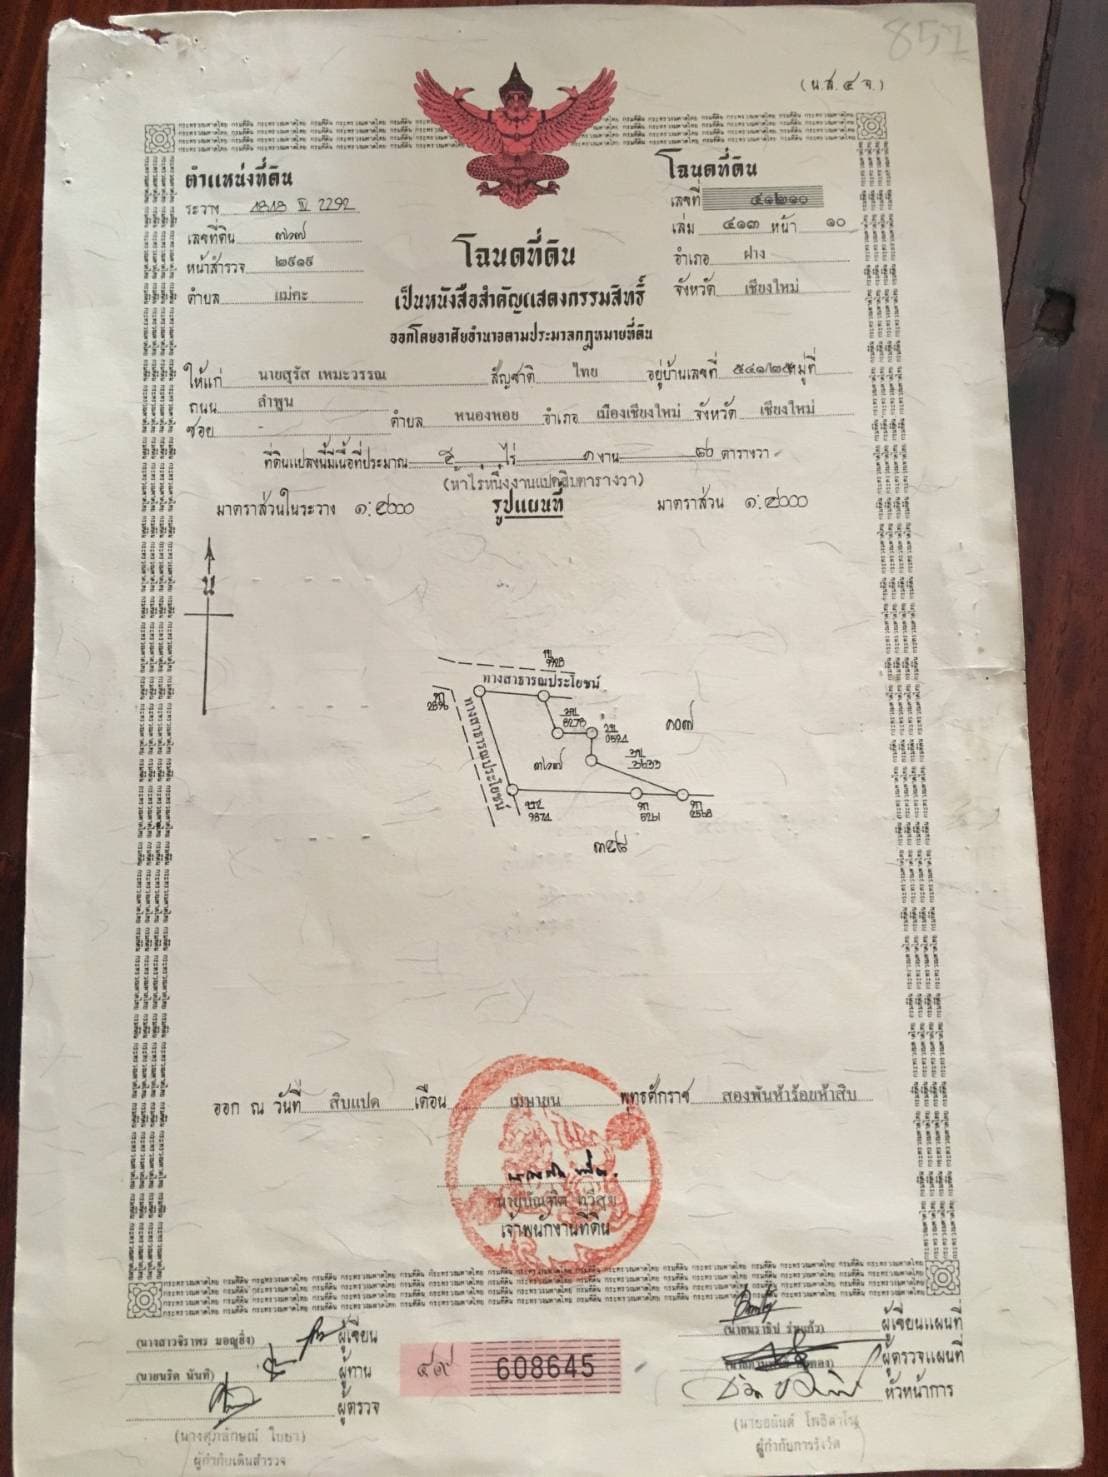 851
(น.ส.๔ จ.)
ตำแหน่งที่ดิน
ระวาง 4848 III 2292
เลขที่ดิน ๓๖๗
หน้าสำรวจ ๒๕๑๕
ตำบล แม่คะ
โฉนดที่ดิน
เลขที่ ๔๑๒๑๐
เล่ม ๔๑๓ หน้า ๑๐
อำเภอ ฝาง
จังหวัด เชียงใหม่
โฉนดที่ดิน
เป็นหนังสือสำคัญแสดงกรรมสิทธิ์
ออกโดยอาศัยอำนาจตามประมวลกฎหมายที่ดิน
ให้แก่ นายสุรัส เหมะวรรณ สัญชาติ ไทย อยู่บ้านเลขที่ ๕๔๑/๒๕ หมู่ที่
ถนน ลำพูน
ซอย - ตำบล หนองหอย อำเภอ เมืองเชียงใหม่ จังหวัด เชียงใหม่
ที่ดินแปลงนี้มีเนื้อที่ประมาณ ๕ ไร่ ๑ งาน ๘๐ ตารางวา
(ห้าไร่หนึ่งงานแปดสิบตารางวา)
มาตราส่วนในระวาง ๑:๔๐๐๐ รูปแผนที่ มาตราส่วน ๑:๔๐๐๐
น
ทางสาธารณประโยชน์
ทางสาธารณประโยชน์
๑๐๗
๓๖๗
๓๕๘
ออก ณ วันที่ สิบแปด เดือน เมษายน พุทธศักราช สองพันห้าร้อยห้าสิบ
นายบัณฑิต ทวีสุข
เจ้าพนักงานที่ดิน
(นางสาวจิราพร มอญยิ่ง) ผู้เขียน
(นายนริด นันที) ผู้ทาน
ผู้ตรวจ
(นางศุภลักษณ์ ใบยา)
ผู้กำกับเดินสำรวจ
608645
ผู้เขียนแผนที่
ผู้ตรวจแผนที่
หัวหน้าการ
ผู้กำกับการรังวัด